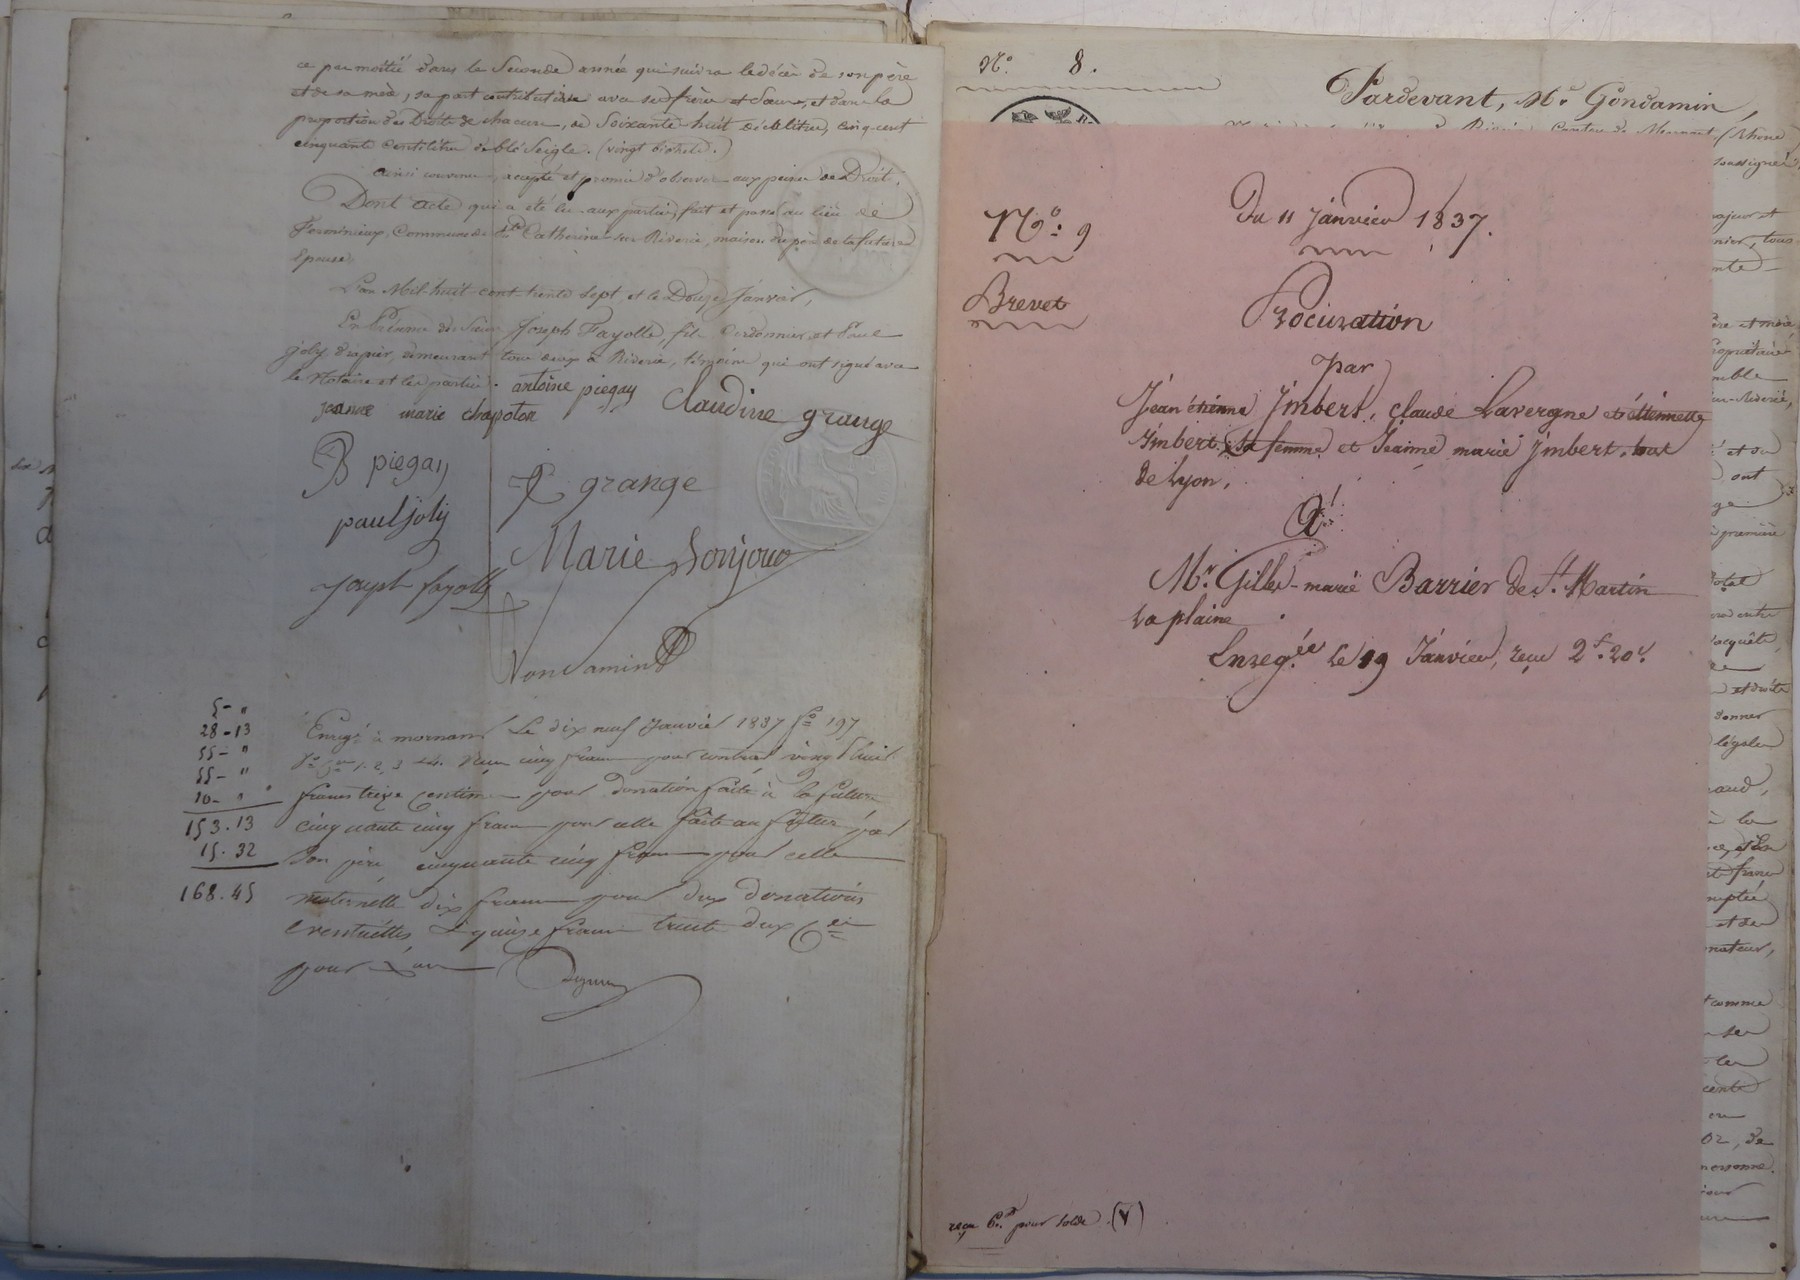 ce par moitié dans la seconde année qui suivra le décès de son père
et de sa mère, sa part contributive avec ses frères et sœurs, et dans la
proportion des Droits de chacun, de soixante-huit décalitres, cinq cent
cinquante centilitres de blé seigle. (vingt bichets.)
Ainsi convenu, accepté et promis d'observer aux peines de Droit.
Dont Acte qui a été lu aux parties, fait et passé au lieu de
Commune de Ste Catherine-sur-Riverie, maison du père de la future
épouse.
L'an Mil-huit-cent-trente-sept, et le Douze Janvier,
En Présence de Sieurs Joseph Fayolle, fils Cordonnier, et Paul
joly drapier, demeurant tous deux à Riverie, témoins qui ont signé avec
le Notaire et les parties. antoine piegay
jeanne marie chapoton Claudine grange
B piegay
grange
paul joly
Marie Bonjour
Joseph fayolle
Condamin
5 - "
28 - 13
55 - "
55 - "
10 - "
153 . 13
15 . 32
168 . 45
Enregé à mornant le dix neuf Janvier 1837 fo 197
1. 2, 3 et 4. Reçu cinq francs pour contrat vingt huit
francs treize centimes pour donation faite à la future
cinquante cinq francs pour celle faite au futur par
son père cinquante cinq francs pour celle
maternelle dix francs pour deux donations
éventuelles, & quinze francs trente deux Ces
pour
No. 8.
Pardevant, Me. Condamin,
No. 9
Du 11 Janvier 1837.
Brevet
Procuration
par
Jean étienne Jmbert, Claude Lavergne et étiennette
Jmbert, sa femme et Jeanne marie Jmbert, tous
de Lyon,
A
Mr. Gilles-marie Barrier de St. Martin
la plaine
Enregée le 19 Janvier, reçu 2f. 20c.
reçu 6f. pour solde. (V)